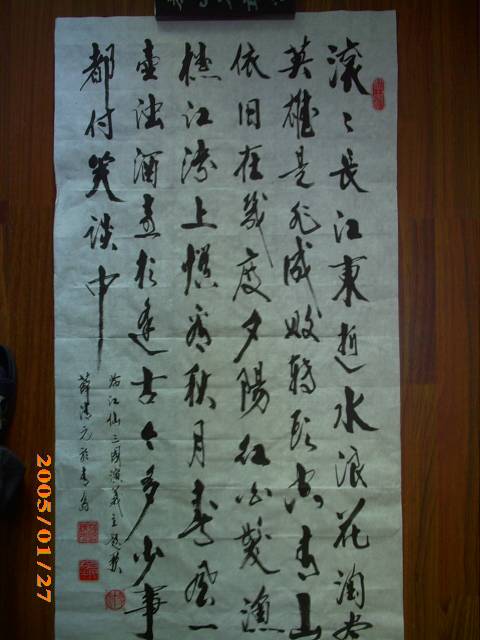 滚〻長江東逝水浪花淘尽
英雄是非成敗转头空青山
依旧在幾度夕陽红白髮渔
樵江渚上惯看秋月春風一
壶浊酒喜相逢古今多少事
都付笑谈中
临江仙三國演義主题歌
2005/01/27